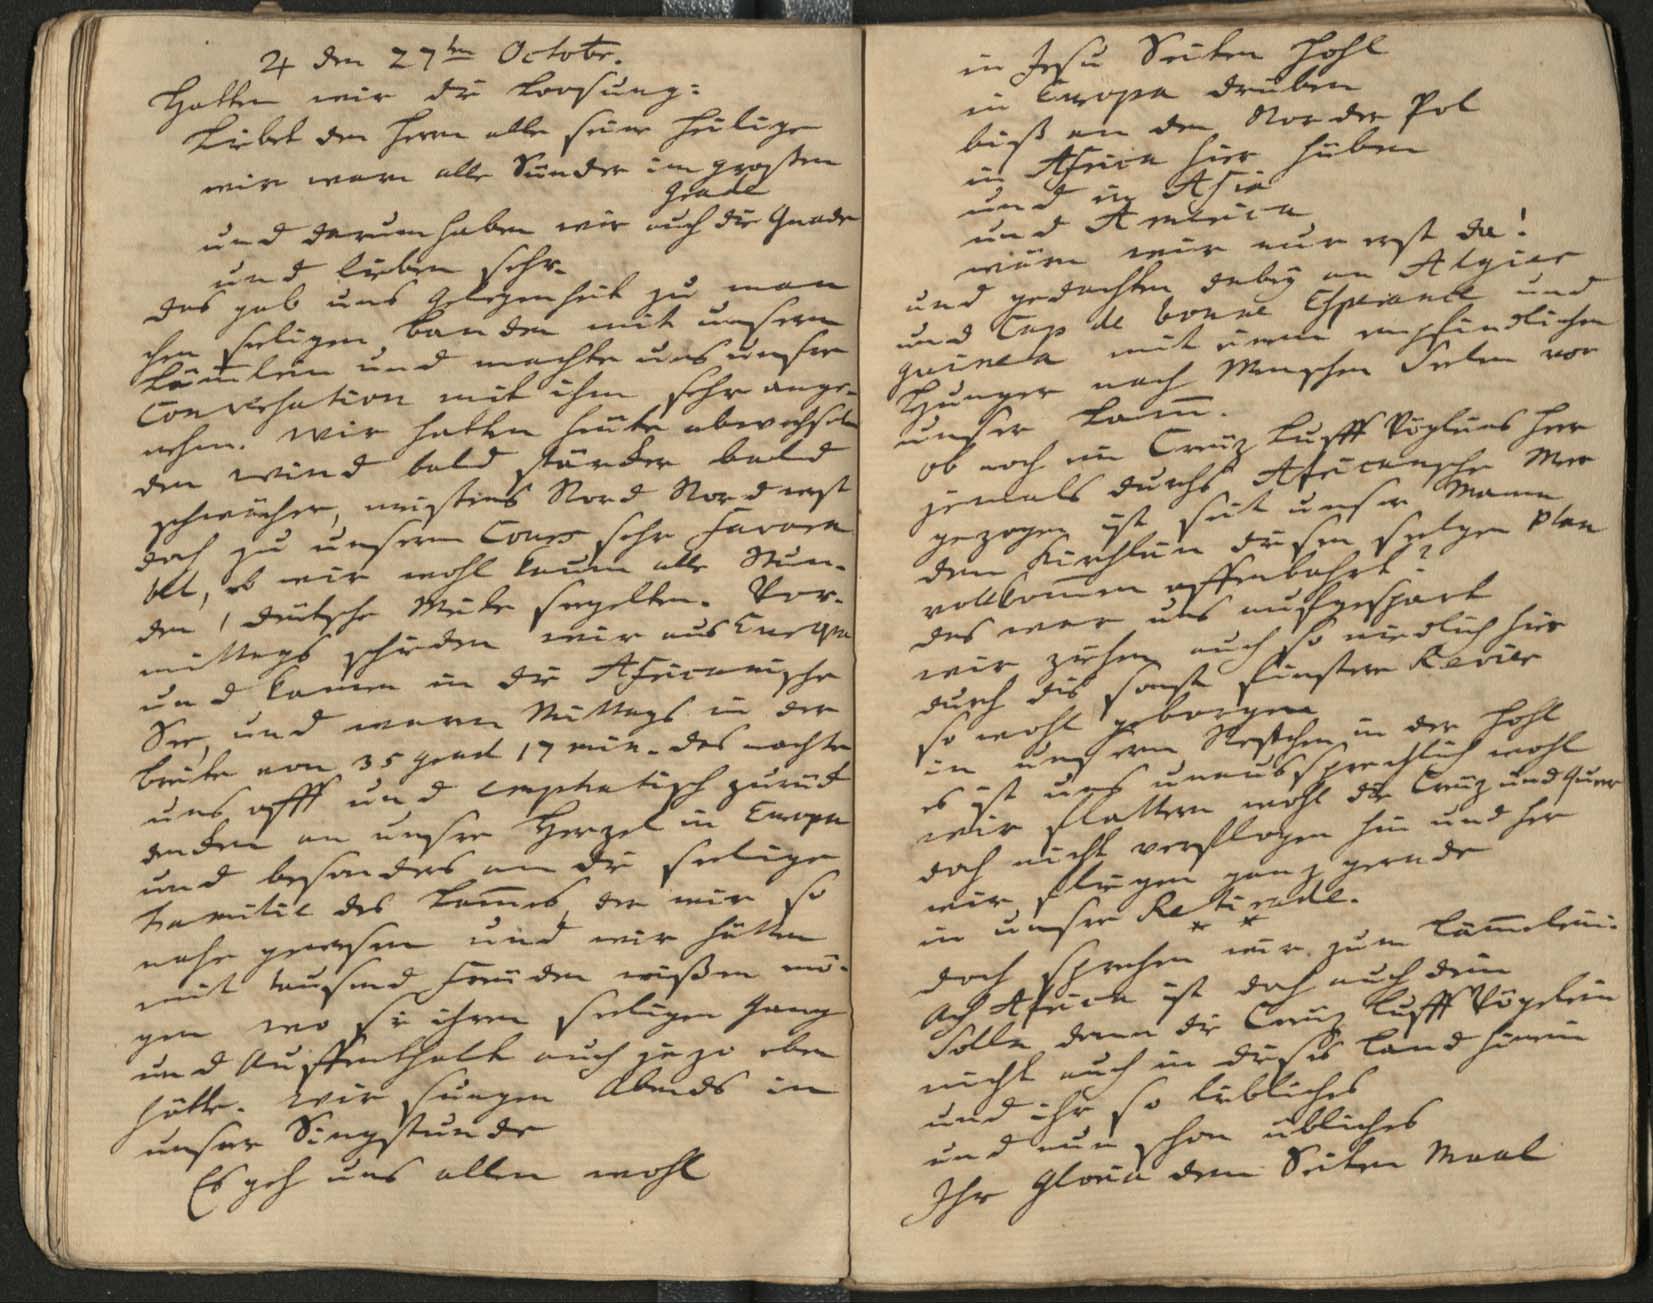 ♃ den 27ten Octobr.
Hatten wir die Loosung:
Liebet den Herrn alle seine Heilige
wir warn alle Sünder im großen
Grade
und darum haben wir auch die Gnade
und lieben sehr.
das gab uns Gelegenheit zu man
chen seeligen banden mit unserm
Lämlein und machte uns unsere
Conversation mit ihm sehr ange-
nehm. Wir hatten heute abwechseln
den Wind bald stärcker bald
schwächer, meistens Nord Nord west
doch zu unserm Cours sehr favora
bel, ob wir wohl kaum alle Stun-
den 1 deutsche Meile segelten. Vor-
mittags schieden wir aus Europa
und kamen in die Africanische
See, und waren Mittags in der
breite von 35 grad 17 min. das machte
uns offt und emphatisch zurück
dencken an unsre Herzel in Europa
und besonders an die seelige
Familie des Lames, der wir so
nahe gewesen und wir hätten
mit tausend Freuden wißen mö-
gen wo sie ihren seeligen Gang
und Auffenthalt auch jezo eben
hätte. Wir sungen Abends in
unsrer Singstunde
Es geh uns allen wohl
in Jesu Seiten Hohl
in Europa drüben
biß an den Norder Pol
in Africa hier hüben
und in Asia
und America
wärn wir nur erst da!
und gedachten dabey an Algier
und Cap de bonne Esperance und
Guinea mit einem empfindlichen
Hunger nach Menschen Seelen vor
unser Lamm.
Ob noch ein Creuz Lufft Vögleins Heer
jemals durchs Africansche Meer
gezogen ist seit unser Mama
dem Kirchlein diesen selgen Plan
vollkommen offenbahrt?
das war uns aufgespart
wir ziehen auch so niedlich hier
durch dis sonst finstere Revier
so wohl geborgen
in unserm Nestchen in der Hohl
es ist uns unaussprechlich wohl
wir flattern wohl die Creuz und Quer
doch nicht verflogen hin und her
wir fliegen ganz gerade
in unsre Retirade.
* *
doch sprechen wir zum Lämelein:
Ach Africa ist doch auch dein
Solln denn die Creuz Lufft Vögelein
nicht auch in dieses Land hinein
und ihr so liebliches
und nun schon übliches
Ihr Gloria dem Seiten Maal